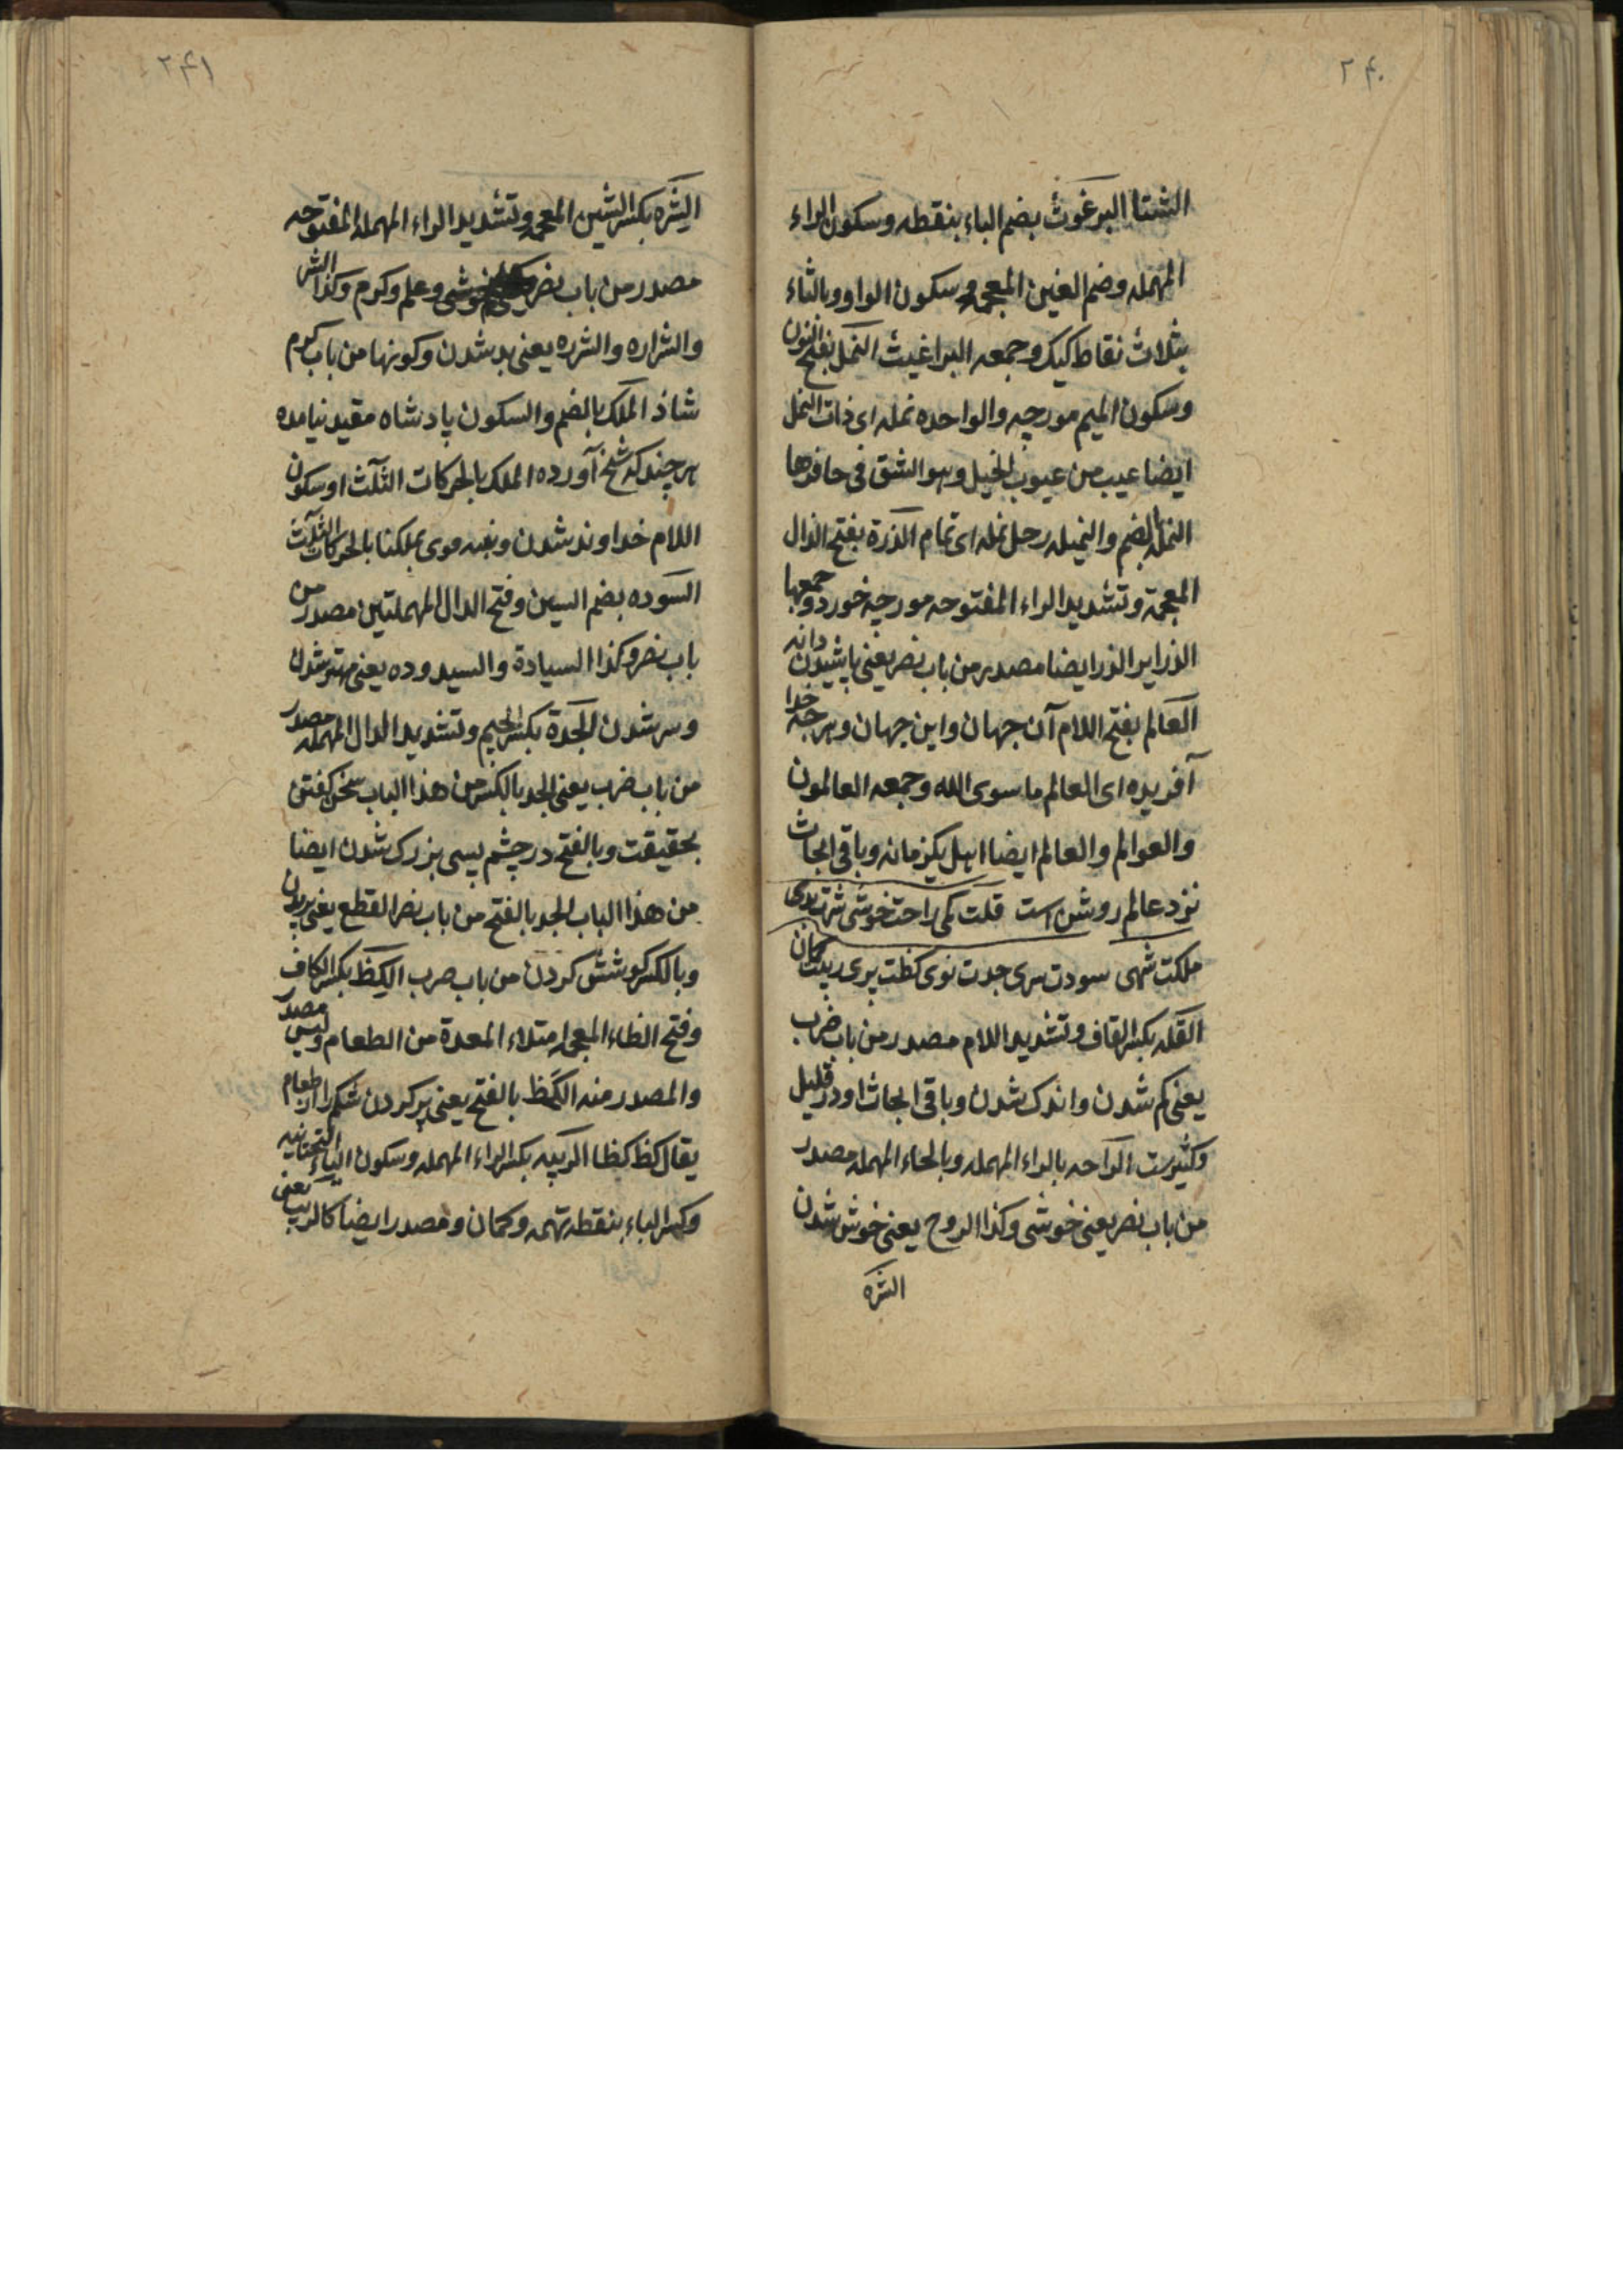 ۲۴۰
الشتا البرغوث بضم الباء بنقطه وسكون الراء
المهمله وضم الغين المعجمه وسكون الواو وبالثاء
بثلاث نقاط كيك وجمعه البراغيث النمل بفتح النون
وسكون الميم مورچه والواحده نمله اى ذات النمل
ايضا عيب من عيوب الخيل وهو الشق فى حافرها
النمله بالضم والنميله رجل نمله اى نمام الذرة بفتح الذال
المعجمة وتشديد الراء المفتوحه مورچه خورد وجمعها
الذراير الذر ايضا مصدر من باب نصر يعنى پاشيدن دانه
العالم بفتح اللام آن جهان واين جهان وهرچه خدا
آفريده اى العالم ما سوى الله وجمعه العالمون
والعوالم والعالم ايضا اهل يكزمانه وباقى ابحاث
نزد عالم روشن است قلت كمى راحت خوشى شرت بدى
ملكت شهى سودت سرى جدت نوى كظت پرى ريبت گمان
القله بكسر القاف وتشديد اللام مصدر من باب ضرب
يعنى كم شدن واندك شدن وباقى ابحاث او در قليل
وكثيرست الراحه بالراء المهمله وبالحاء المهمله مصدر
من باب نصر يعنى خوشى وكذا الروح يعنى خوش شدن
الشره
۲۴۱
الشره بكسر الشين المعجمه وتشديد الراء المهمله المفتوحه
مصدر من باب نصر وعلم وكرم وكذا الشر
والشراره والشرره يعنى بد شدن وكونها من باب كرم
شاذ الملك بالضم والسكون پادشاه مقيد نيامده
هرچند كه شيخ آورده الملك بالحركات الثلث او سكون
اللام خداوند شدن وبملكنا بالحركات الثلث
السوده بضم السين وفتح الدال المهملتين مصدر من
باب نصر وكذا السيادة والسيدوده يعنى مهتر شدن
وسر شدن الجدة بكسر الجيم وتشديد الدال المهمله مصدر
من باب ضرب يعنى الجد بالكسر من هذا الباب سخن كفتن
بحقيقت وبالفتح در چشم بسى بزرك شدن ايضا
من هذا الباب الجد بالفتح من باب نصر القطع يعنى بريدن
وبالكسر كوشش كردن من باب ضرب الكظ بكسر الكاف
وفتح الظاء المعجمه امتلاء المعدة من الطعام وليس مصدر
والمصدر منه الكظ بالفتح يعنى پر كردن شكم را از طعام
يقال كظ كظا الريبه بكسر الراء المهمله وسكون الياء التحتانيه
وكسر الباء بنقطه تهمه وگمان ومصدر ايضا كالريب يعنى